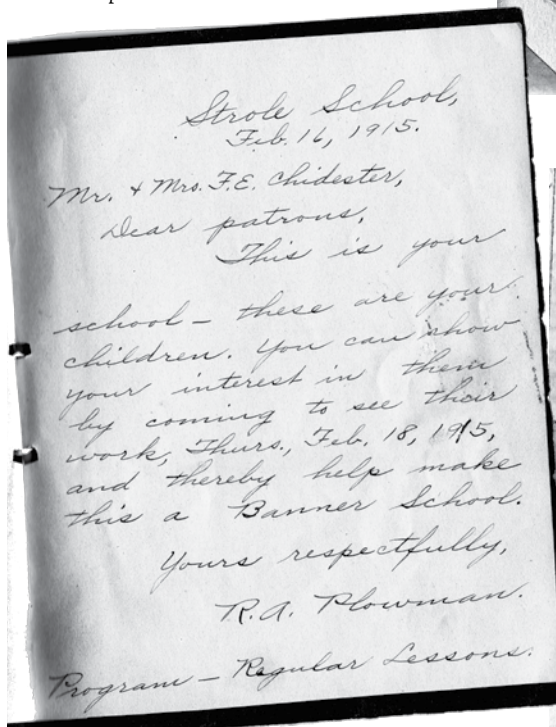 Strole School,
Feb. 16, 1915.
Mr. + Mrs. F.E. Chidester,
Dear patrons,
This is your
school – these are your
children. You can show
your interest in them
by coming to see their
work, Thurs., Feb. 18, 1915,
and thereby help make
this a Banner School.
Yours respectfully,
R.A. Plowman.
Program – Regular Lessons.